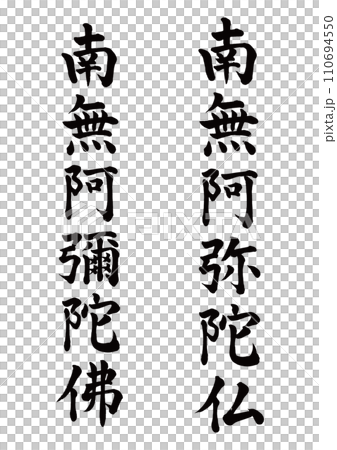 南無阿弥陀仏
南無阿彌陀佛
PIXTA
pixta.jp - 110694550